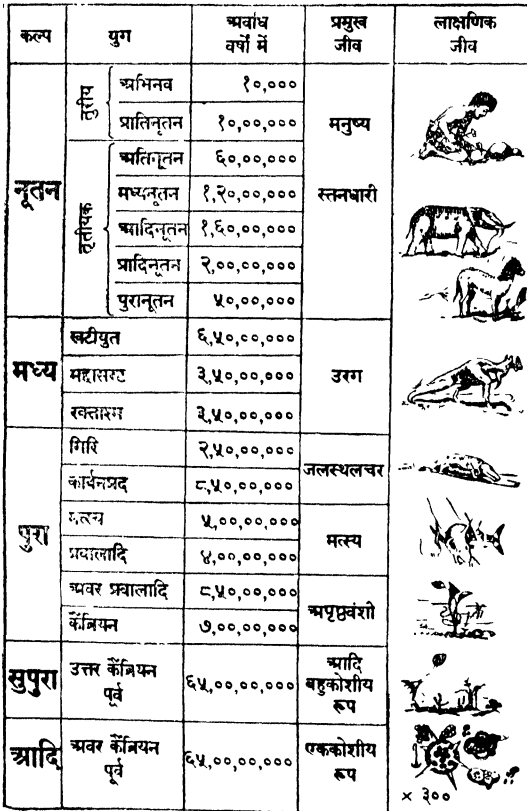 कल्प युग अवधि वर्षों में प्रमुख जीव लाक्षणिक जीव
नूतन
तुरीय
अभिनव १०,०००
प्रातिनूतन १०,००,०००
मनुष्य
तृतीयक
अतिनूतन ६०,००,०००
मध्यनूतन १,२०,००,०००
स्तनधारी
आदिनूतन १,६०,००,०००
प्रादिनूतन २,००,००,०००
पुरानूतन ५०,००,०००
मध्य
खटीयुत ६,५०,००,०००
महासरट ३,५०,००,०००
उरग
रक्ताश्म ३,५०,००,०००
पुरा
गिरि २,५०,००,०००
जलस्थलचर
कार्बनप्रद ८,५०,००,०००
मत्स्य ५,००,००,०००
मत्स्य
प्रवालादि ४,००,००,०००
अवर प्रवालादि ८,५०,००,०००
अपृष्ठवंशी
कैंब्रियन ७,००,००,०००
सुपुरा
उत्तर कैंब्रियन पूर्व ६५,००,००,०००
आदि बहुकोशीय रूप
आदि
अवर कैंब्रियन पूर्व ६५,००,००,०००
एककोशीय रूप
× ३००